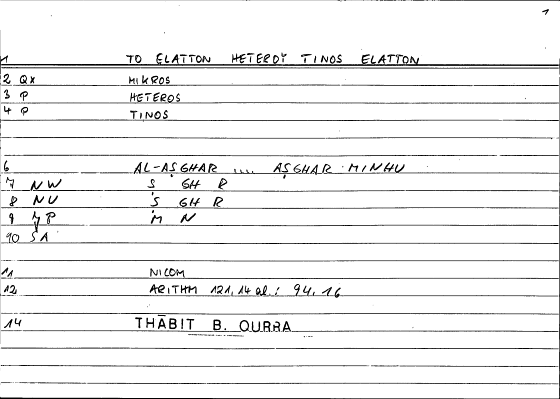 1
1 TO ELATTON HETEROY TINOS ELATTON
2 QX MIKROS
3 P HETEROS
4 P TINOS
6 AL-AṢGHAR .... AṢGHAR MINHU
7 NW Ṣ GH R
8 NU Ṣ GH R
9 JP M N
10 SA
11 NICOM
12 ARITHM 121,14 al.: 94,16
14 THĀBIT B. QURRA